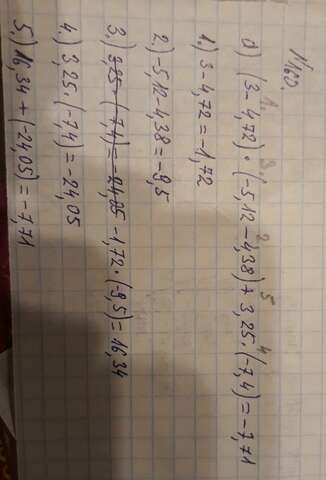 N1160
д) (3-4,72)·(-5,12-4,38)+3,25·(-7,4)=-7,71
1. 3. 2. 5 4
1.) 3-4,72=-1,72
2.) -5,12-4,38=-9,5
3.) -1,72·(-9,5)=16,34
4.) 3,25·(-74)=-24,05
5.) 16,34+(-24,05)=-7,71